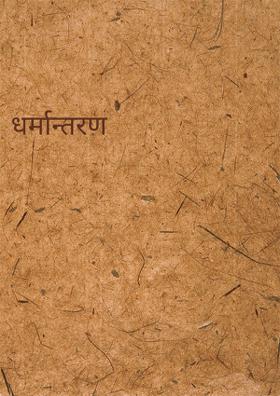 धर्मान्तरण